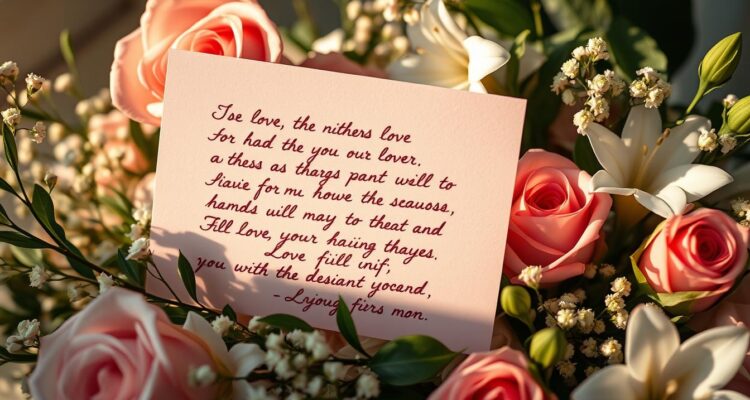 Tse love, the nithers love
for had the you our lover.
a thess as thargs pant will to
Jiavie for mu howe the seauoss,
hamds will may to theat and
Fill love, your haiing thayes.
Love fiill inif,
you with the desiant yocand,
- Lrjoug fiers mon.